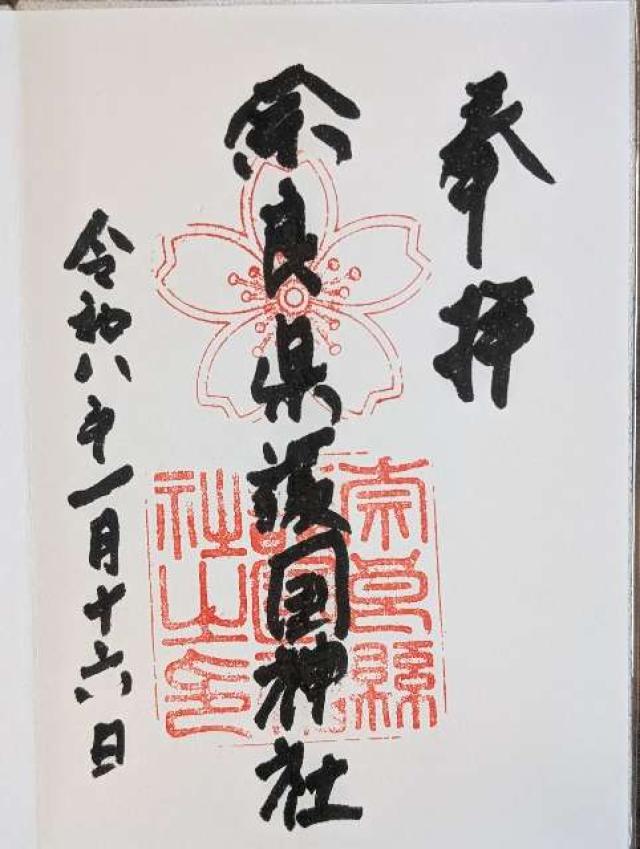 奉拝
奈良県護国神社
令和八年一月十六日
奈良縣
護國神
社之印